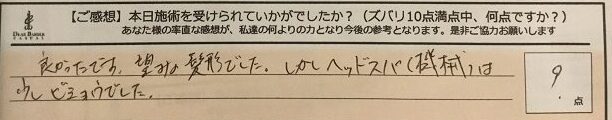 【ご感想】本日施術を受けられていかがでしたか？（ズバリ10点満点中、何点ですか？）
あなた様の率直な感想が、私達の何よりの力となり今後の参考となります。是非ご協力お願いします
DEAR BARBER
CASUAL
良かったです。望みの髪形でした。しかしヘッドスパ（機械）は
少しビミョウでした。
9
点